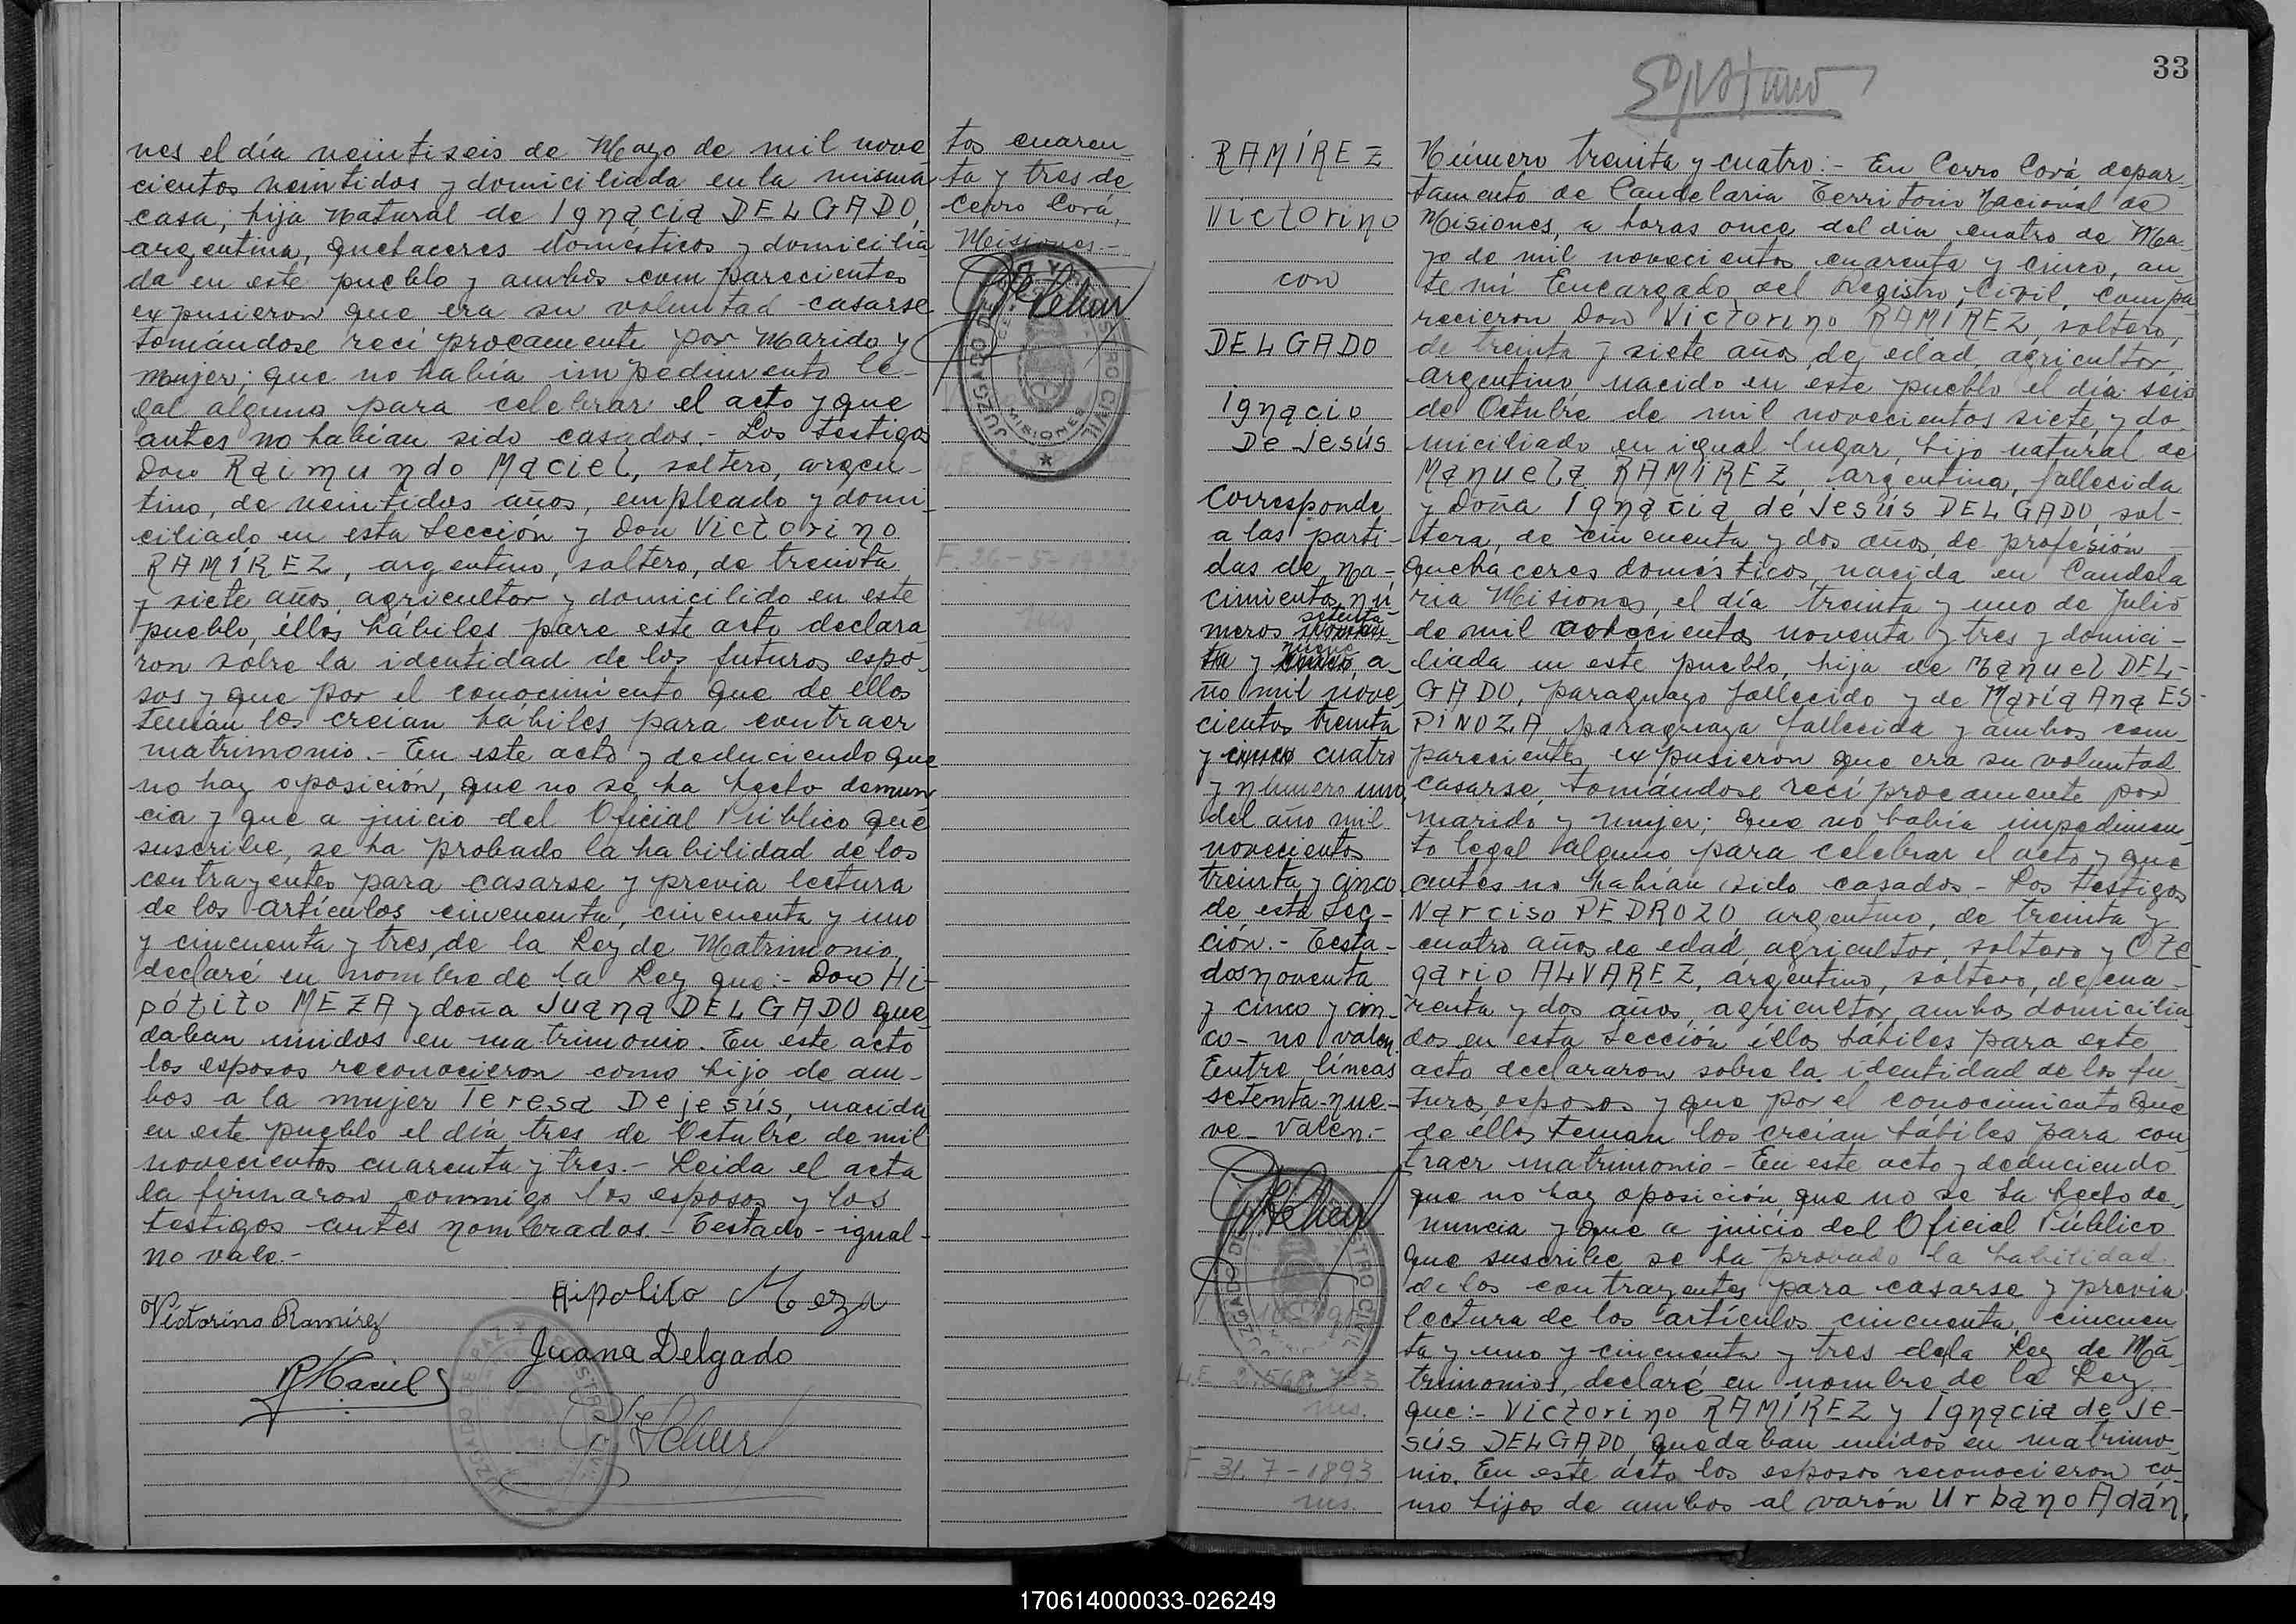 nes el día veintiseis de Mayo de mil nove
cientos veintidos y domiciliada en la misma
casa, hija natural de Ignacia DELGADO,
argentina, quehaceres domésticos y domicilia
da en este pueblo y ambos comparecientes
expusieron que era su voluntad casarse
tomándose recíprocamente por Marido y
Mujer; que no había impedimento le-
gal alguno para celebrar el acto y que
antes no habían sido casados.- Los testigos
Don Raimundo Maciel, soltero, argen-
tino, de veintidos años, empleado y domi
ciliado en esta Sección y Don Victorino
RAMÍREZ, argentino, soltero, de treinta
y siete años, agricultor y domicilido en este
pueblo, éllos hábiles para este acto declara
ron sobre la identidad de los futuros espo-
sos y que por el conocimiento que de ellos
tenían los creían hábiles para contraer
matrimonio.- En este acto y deduciendo que
no hay oposición, que no se ha hecho denun
cia y que a juicio del Oficial Público que
suscribe, se ha probado la habilidad de los
contrayentes para casarse y previa lectura
de los artículos cincuenta, cincuenta y uno
y cincuenta y tres de la Ley de Matrimonio,
declaré en nombre de la Ley que:- Don Hi-
pólito MEZA y doña Juana DELGADO que
daban unidos en matrimonio. En este acto
los esposos reconocieron como hijo de am-
bos a la mujer Teresa De jesús, nacida
en este pueblo el día tres de Octubre de mil
novecientos cuarenta y tres.- Leida el acta
la firmaron conmigo los esposos y los
testigos antes nombrados.- Testado - igual-
no vale.-
Hipolito Meza
Victorino Ramírez
Juana Delgado
RMaciel
tos cuaren-
ta y tres de
Cerro Corá,
Misiones.-
JUZGADO DE PAZ Y REGISTRO CIVIL
MISIONES
F. 26-5-1922
33
RAMÍREZ
Victorino
con
DELGADO
Ignacio
De Jesús
Corresponde
a las parti-
das de na-
cimientos nú
setenta
meros noven
nueve
ta y cinco, a-
ño mil nove
cientos treinta
y cinco cuatro
y número uno
del año mil
novecientos
treinta y cinco
de esta Sec-
ción.- Testa-
dos noventa
y cinco y cin-
co- no valen.
Entre líneas
setenta-nue-
ve- Valen.-
F 31-7-1893
ms.
Número treinta y cuatro:- En Cerro Corá depar-
tamento de Candelaria Territorio Nacional de
Misiones, a horas once del día cuatro de Ma
yo de mil novecientos cuarenta y cinco, an
te mí Encargado del Registro Civil, compa
recieron Don Victorino RAMÍREZ, soltero,
de treinta y siete años de edad, agricultor,
argentino, nacido en este pueblo el día seis
de Octubre de mil novecientos siete y do-
miciliado en igual lugar, hijo natural de
Manuela RAMÍREZ, argentina, fallecida
y Doña Ignacia de Jesús DELGADO, sol-
tera, de cincuenta y dos años, de profesión
quehaceres domésticos, nacida en Candela
ria Misiones, el día treinta y uno de Julio
de mil ochocientos noventa y tres y domici-
liada en este pueblo, hija de Manuel DEL-
GADO, paraguayo fallecido y de María Ana ES-
PINOZA, paraguaya fallecida y ambos com-
parecientes expusieron que era su voluntad
casarse, tomándose recíprocamente por
marido y mujer; que no había impedimen
to legal alguno para celebrar el acto y que
antes no habían sido casados - Los testigos
Narciso PEDROZO argentino, de treinta y
cuatro años de edad, agricultor, soltero y Ole
gario ALVAREZ, argentino, soltero, de cua-
renta y dos años, agricultor, ambos domicilia
dos en esta Sección éllos hábiles para este
acto declararon sobre la identidad de los fu
turos esposos y que por el conocimiento que
de éllos tenían los creían hábiles para con
traer matrimonio - En este acto y deduciendo
que no hay oposición que no se ha hecho de-
nuncia y que a juicio del Oficial Público
que suscribe se ha probado la habilidad
de los contrayentes para casarse y previa
lectura de los artículos cincuenta, cincuen
ta y uno y cincuenta y tres dela Ley de Ma
trimonios, declaré en nombre de la Ley
que:- Victorino RAMÍREZ y Ignacia de Je-
sús DELGADO, quedaban unidos en matrimo-
nio. En este acto los esposos reconocieron co-
mo hijos de ambos al varón Urbano Adán,
170614000033-026249